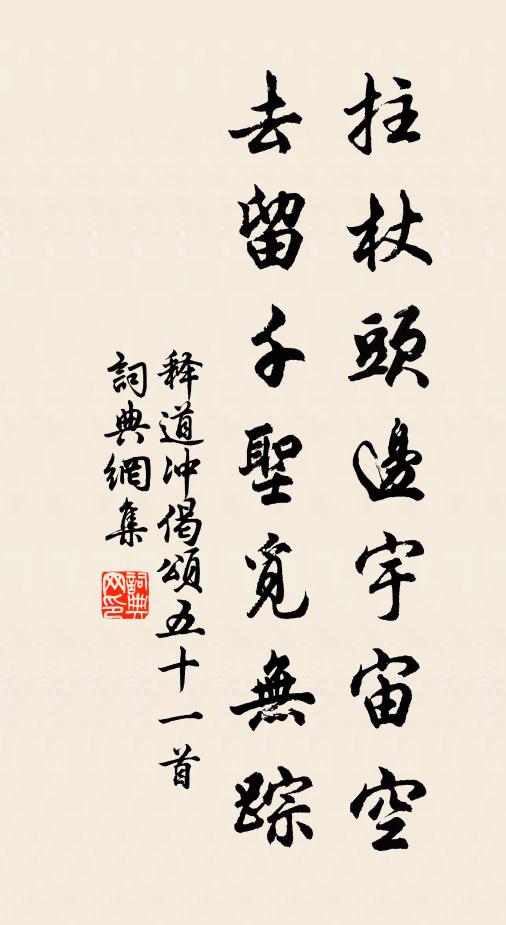 拄杖頭邊宇宙空
去留千聖覓無踪
释道冲偈頌五十一首
詞典網集
詞典
网印